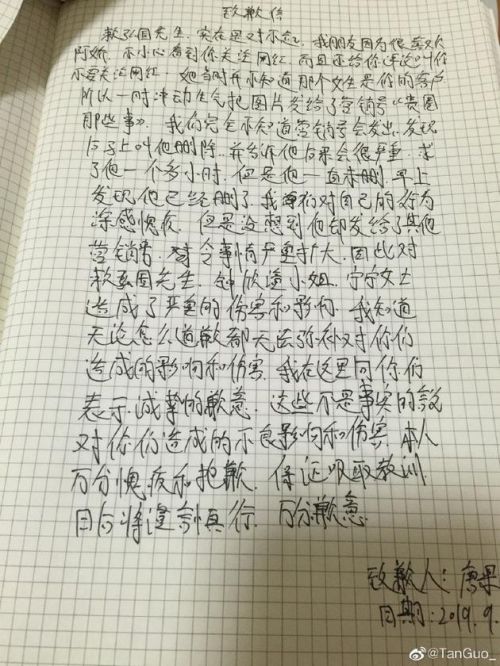 致歉信
赖弘国先生，实在是对不起，我朋友因为很喜欢
阿娇，不小心看到你关注网红，而且还给你评论叫你
不要关注网红，她当时并不知道那个女生是你的客户
所以一时冲动生气把图片发给了营销号《贵圈
那些事》，我们完全不知道营销号会发出，发现
后马上叫他删除，并告诉他后果会很严重，求
了他一个多小时，但是他一直未删，早上
发现他已经删了，我们对自己的行为
深感愧疚，但是没想到他却发给了其他
营销号，令事情严重扩大，因此对
赖弘国先生，钟欣潼小姐，宁宁女士
造成了严重的伤害和影响，我知道
无论怎么道歉都无法弥补对你们
造成的影响和伤害，我在这里向你们
表示诚挚的歉意，这些不是事实的
对你们造成的不良影响和伤害，本人
万分愧疚和抱歉，保证吸取教训
日后将谨言慎行，万分歉意
致歉人：唐果
日期：2019.9.
@TanGuo_